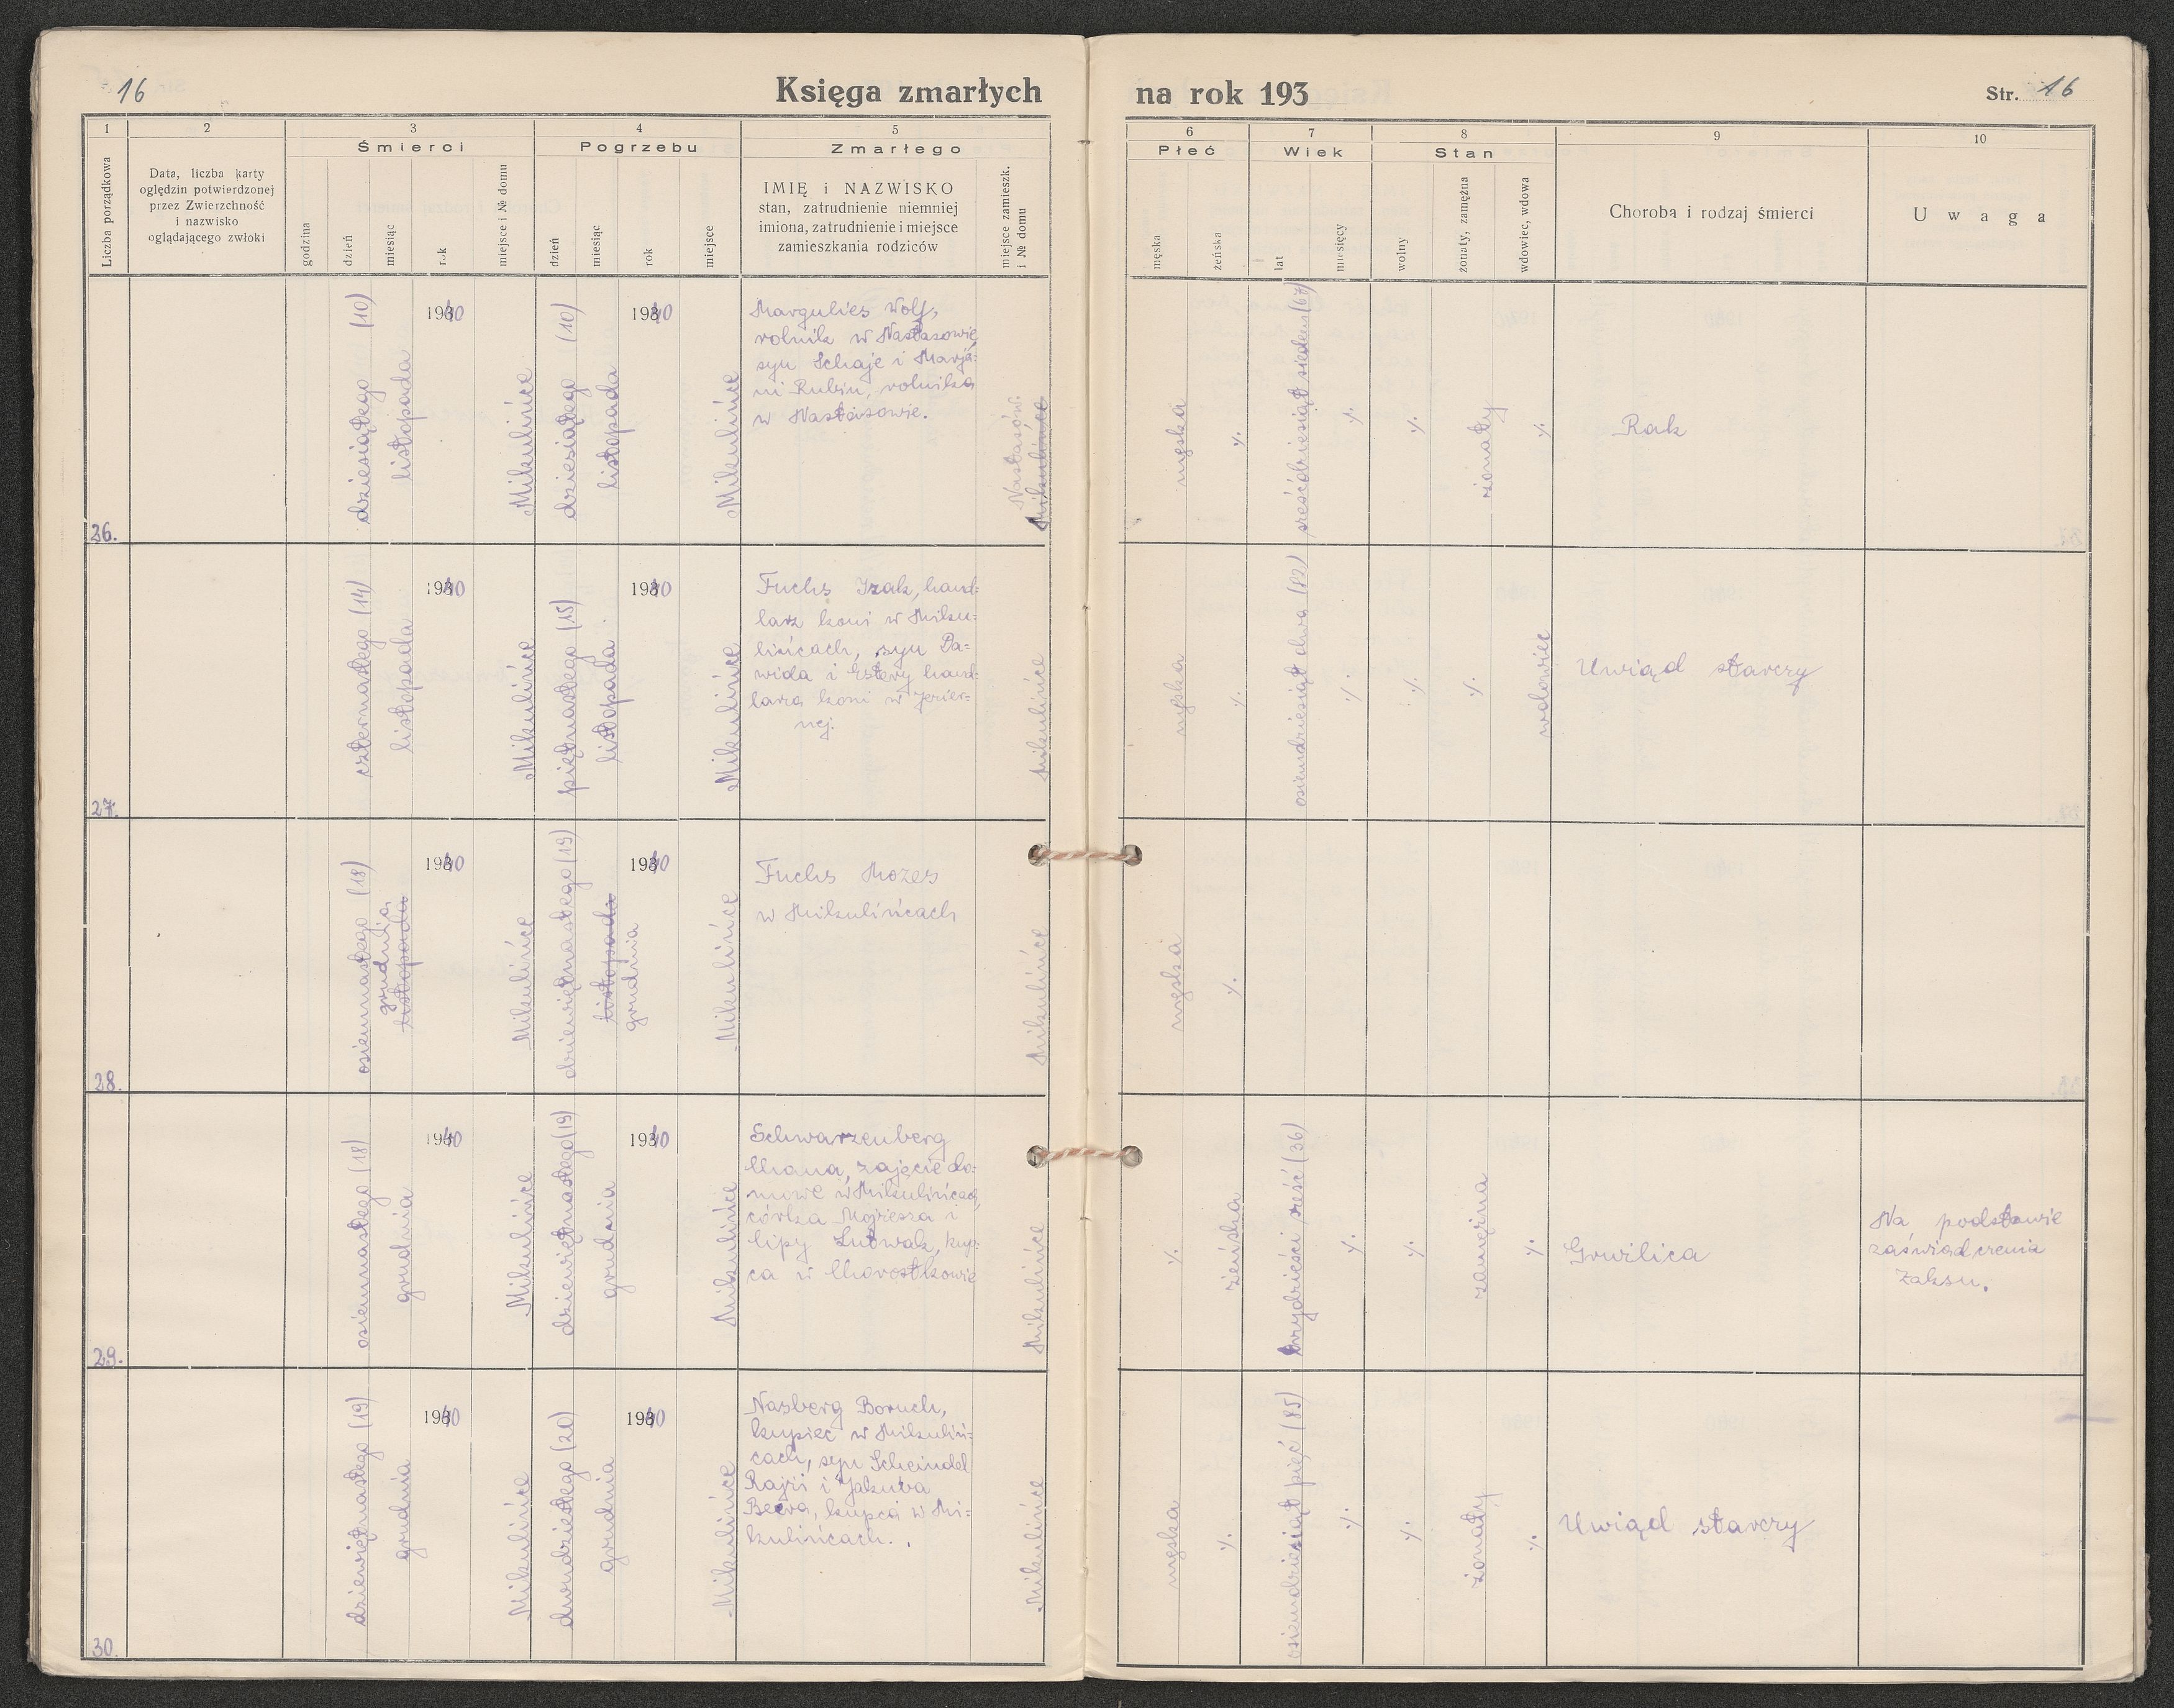 16
Księga zmarłych na rok 193
Str. 16
1 2 3 4 5 6 7 8 9 10
Śmierci Pogrzebu Zmarłego Płeć Wiek Stan
Liczba porządkowa
Data, liczba karty
oględzin potwierdzonej
przez Zwierzchność
i nazwisko
oglądającego zwłoki
godzina
dzień
miesiąc
rok
miejsce i № domu
dzień
miesiąc
rok
miejsce
IMIĘ i NAZWISKO
stan, zatrudnienie niemniej
imiona, zatrudnienie i miejsce
zamieszkania rodziców
miejsce zamieszk.
i № domu
męska
żeńska
lat
miesięcy
wolny
żonaty, zamężna
wdowiec, wdowa
Choroba i rodzaj śmierci
Uwaga
26.
dziesiątego (10)
listopada
1940
Mikulińce
dziesiątego (10)
listopada
1940
Mikulińce
Margulies Wolf,
rolnik w Nastasowie,
syn Schaje i Marja-
ni Rubin, rolnika
w Nastasowie.
Nastasów.
Mikulińce
męska
./.
sześćdziesiąt siedem (67)
./.
./.
żonaty
./.
Rak
27.
czternastego (14)
listopada
1940
Mikulińce
piętnastego (15)
listopada
1940
Mikulińce
Fuchs Izak, hand-
larz koni w Miku-
lińcach, syn Da-
wida i Estery hand-
larza koni w Jezier-
nej.
Mikulińce
męska
./.
osiemdziesiąt dwa (82)
./.
./.
./.
wdowiec
Uwiąd starczy
28.
osiemnastego (18)
grudnia
listopada
1940
Mikulińce
dziewiętnastego (19)
listopada
grudnia
1940
Mikulińce
Fuchs Mozes
w Mikulińcach
Mikulińce
męska
./.
29.
osiemnastego (18)
grudnia
1940
Mikulińce
dziewiętnastego (19)
grudnia
1940
Mikulińce
Schwarzenberg
Chana, zajęcie do-
mowe w Mikulińcach,
córka Mojżesza i
Lipy Lutwak, kup-
ca w Chorostkowie
Mikulińce
./.
żeńska
trzydzieści sześć (36)
./.
./.
zamężna
./.
Gruźlica
Na podstawie
zaświadczenia
Zaksu.
30.
dziewiętnastego (19)
grudnia
1940
Mikulińce
dwudziestego (20)
grudnia
1940
Mikulińce
Nasberg Boruch,
kupiec w Mikuliń-
cach, syn Scheindel
Rajzi i Jakuba
Beera, kupca w Mi-
kulińcach.
Mikulińce
męska
./.
osiemdziesiąt pięć (85)
./.
./.
żonaty
./.
Uwiąd starczy